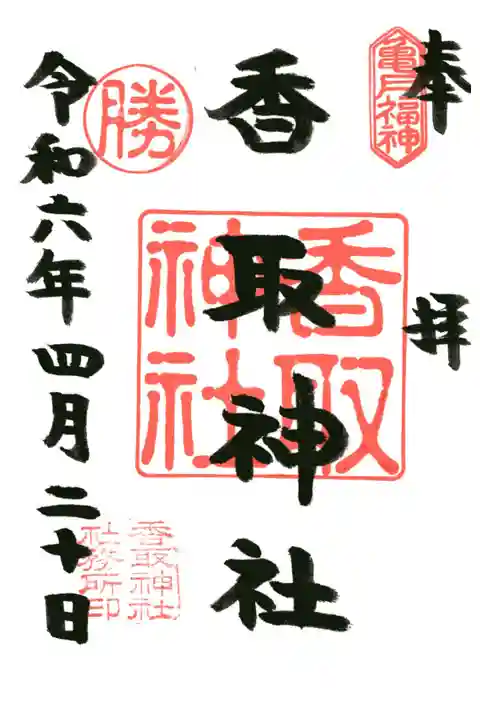 奉拝
亀戸福神
香取神社
香取神社
勝
令和六年四月二十日
香取神社
社務所印